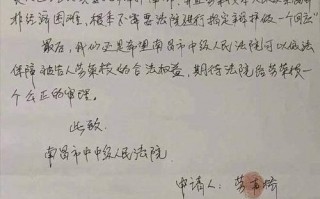 非经济困难,根本不需要法院进行指定辩护做一个回应”
最后,我们还是希望南昌市中级人民法院可以依法
保障被告人劳荣枝的合法权益,期待法院给劳荣枝
一个公正的审理。
此致
南昌市中级人民法院
申请人:劳声桥